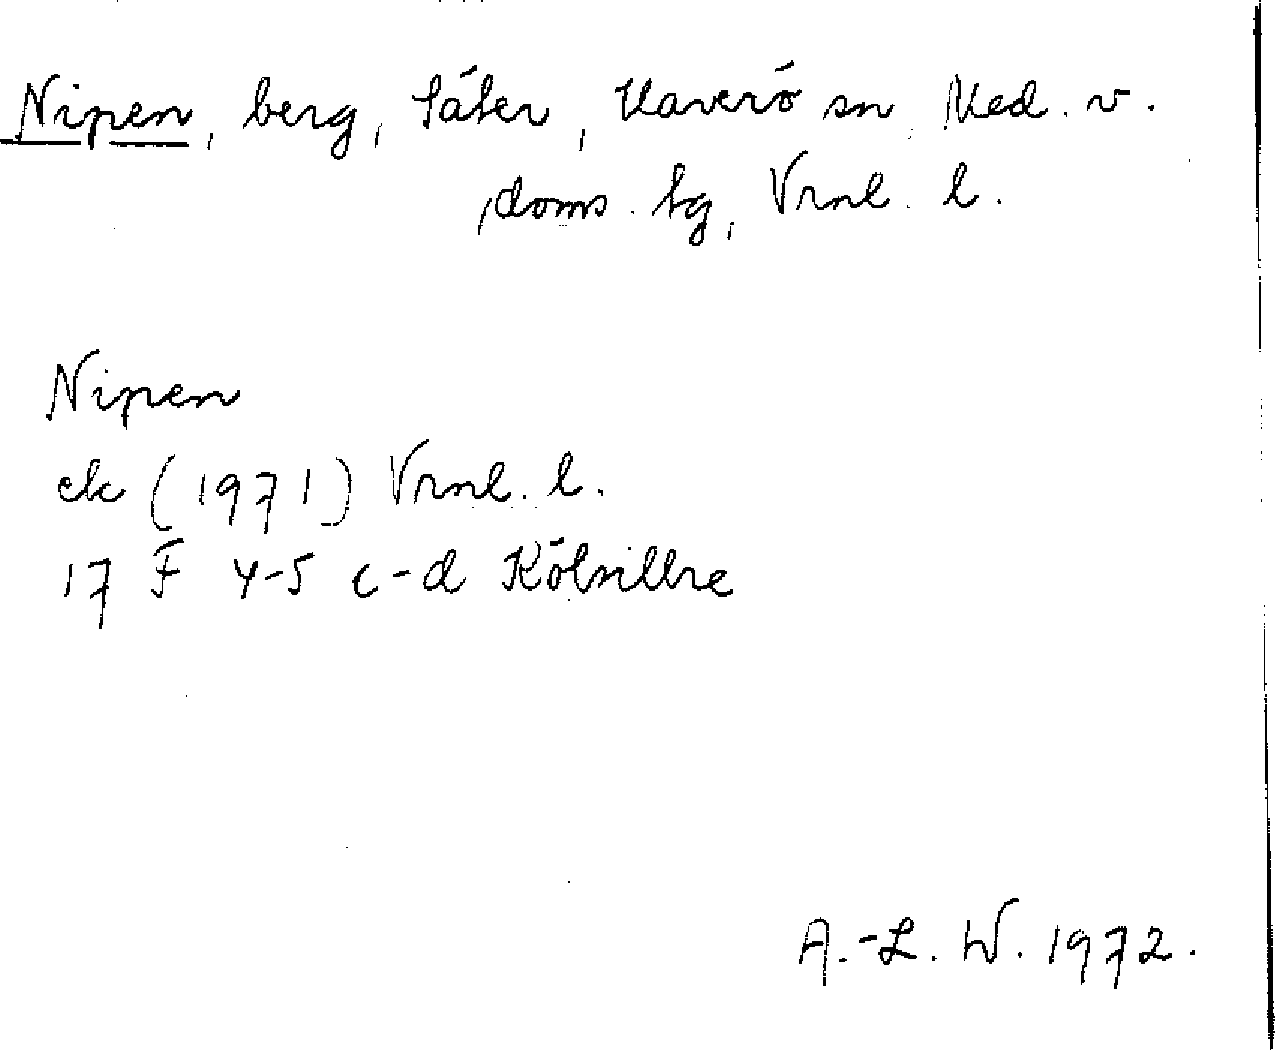 Nipen, berg, Säter, Haverö sn, Med. v.
doms. tg, Vrnl. l.
Nipen
ek (1971) Vrnl. l.
17 F 4-5 c-d Kölsillre
A.-L. W. 1972.